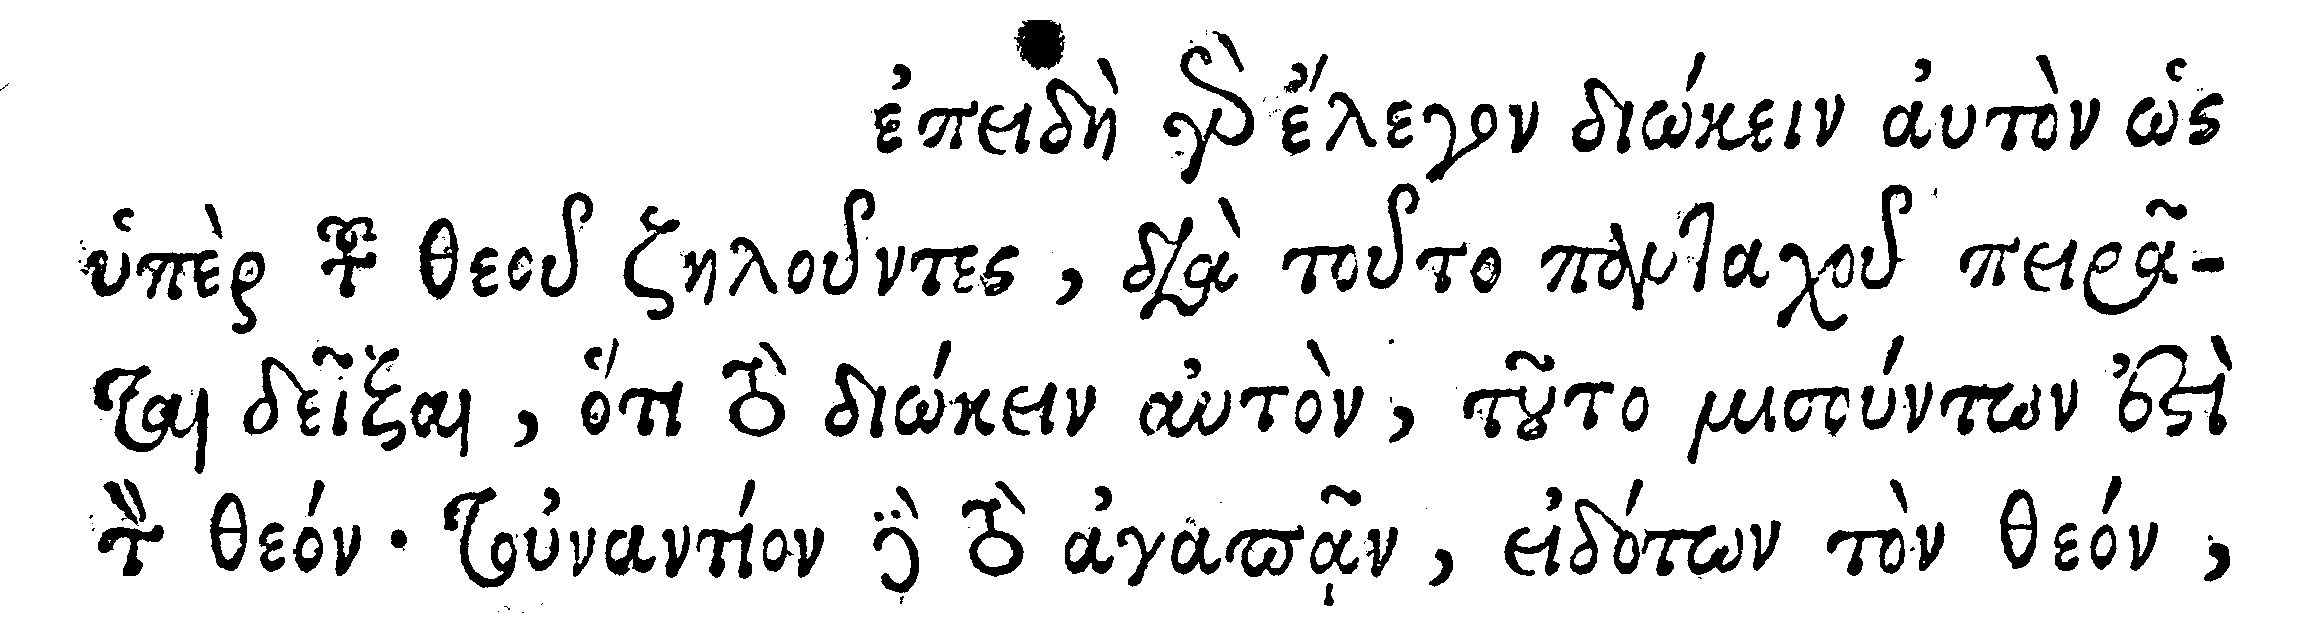 ἐπειδὴ γὰρ ἔλεγον διώκειν αὐτὸν ὡς
ὑπὲρ τοῦ θεοῦ ζηλοῦντες, διὰ τοῦτο πανταχοῦ πειρᾶ-
ται δεῖξαι, ὅτι τὸ διώκειν αὐτὸν, τοῦτο μισούντων ἐστὶ
τὸν θεόν· τοὐναντίον δὲ τὸ ἀγαπᾷν, εἰδότων τὸν θεόν,